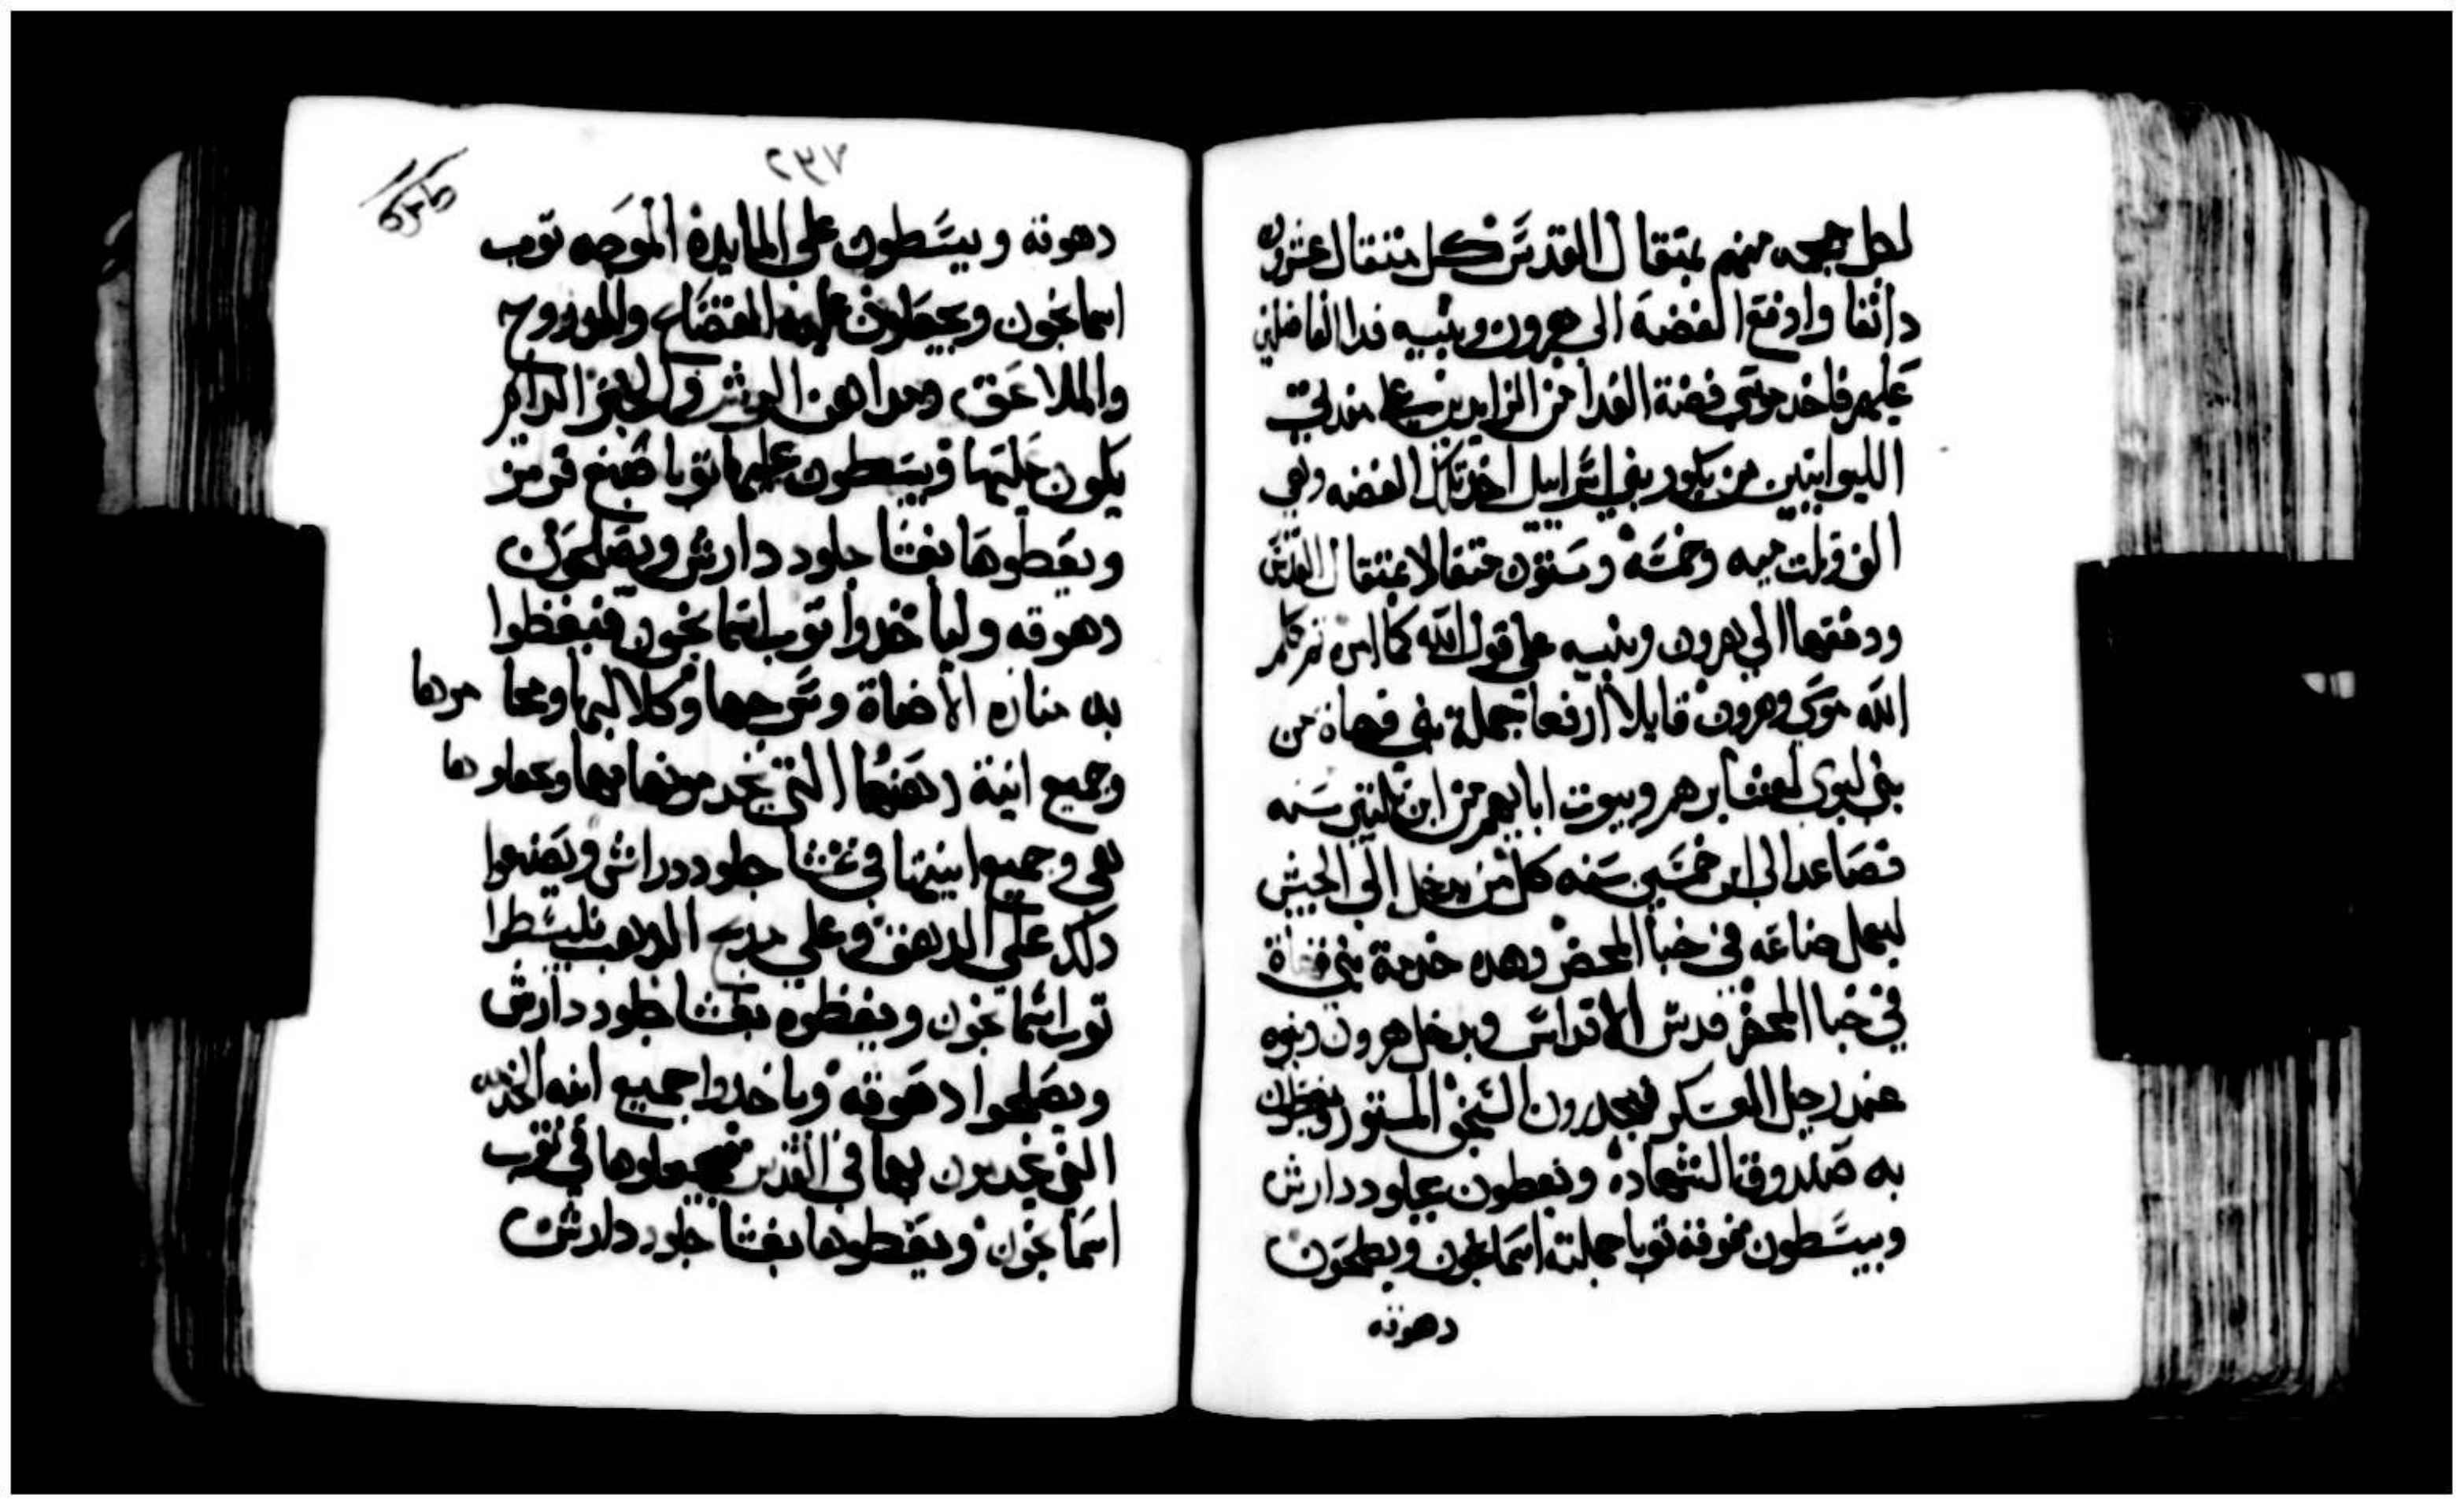 لكل جمجمه منهم بمتقال القدس كل متقال عشرون
دانقا وادفع الفضة الى هرون وبنيه فدا الفاضلين
عليهم فاخد موسى فضة الفدا من الزايدين على مفديى
الليوانيين من بكور بني اسراييل اخد تلك الفضه وهي
الف وتلت ميه وخمسه وستون متقالا بمتقال القدس
ودفعها الي هرون وبنيه على قول الله كما امره تم كلم
الله موسى وهرون قايلا ارفعا جملة بني قهاة من
بني ليوى لعشايرهم وبيوت ابايهم من ابن تلتين سنه
فصاعدا الى ابن خمسين سنه كل من يدخل الى الجيش
ليعمل صناعه في خبا المحضر وهده خدمة بني قهاة
في خبا المحضر قدس الاقداس ويدخل هرون وبنوه
عند رحيل العسكر فيحدرون السجف المستور ويغطون
به صندوق الشهادة ويغطون بجلود دارش
ويبسطون فوقه توبا جملته اسمانجون ويصلحون
دهوقه
٢٣٧
دهوقه ويبسطون على المايدة الموجه توب
اسمانجون ويجعلون عليه القصاع والدروج
والملاعق ومداهن والخبز الدايم
يكون عليها ويبسطون عليها توبا صبغ قرمز
ويغطوها بغشا جلود دارش ويصلحون
دهوقه ولياخدوا توب اسمانجون فيغطوا
به مناره الاضاة وسرجها وكلاليبها
وجميع انية دهنها التي يخدمونها بها ويجعلوها
هي وجميع انيتها في غشا جلود دارش ويصنعوا
دلك علي الدهق وعلي مدبح الدهب فليبسطوا
توب اسمانجون ويغطوه بغشا جلود دارش
ويصلحوا دهوقه وياخدوا جميع انيه الخدمه
التي يخدمون بها في القدس فيجعلوها في توب
اسمانجون ويغطوها بغشا جلود دارش